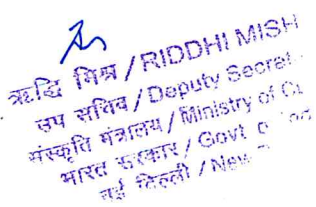 ऋद्धि मिश्र / RIDDHI MISH
उप सचिव / Deputy Secret
संस्कृति मंत्रालय / Ministry of
भारत सरकार / Govt
नई दिल्ली / New